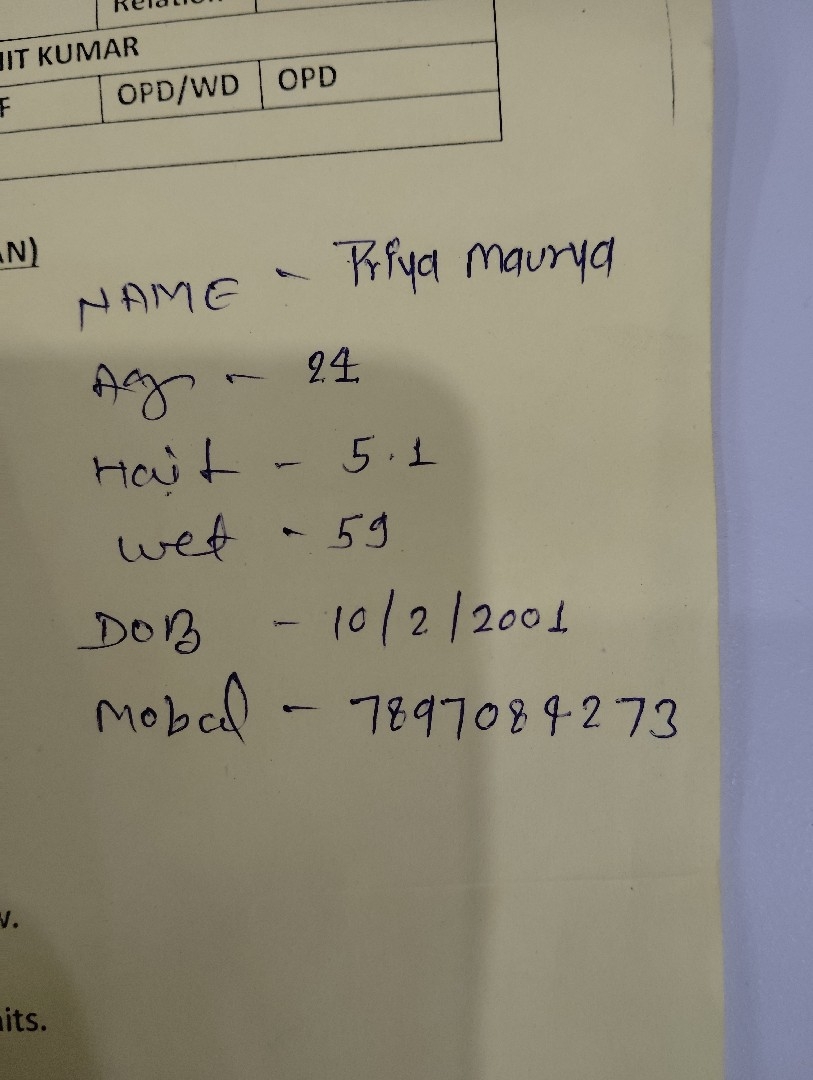 Relation
IIT KUMAR
F OPD/WD OPD
AN)
NAME - Priya Maurya
Ag - 24
Hait - 5.1
wet - 59
DOB - 10/2/2001
Mobal - 7897084273
v.
its.